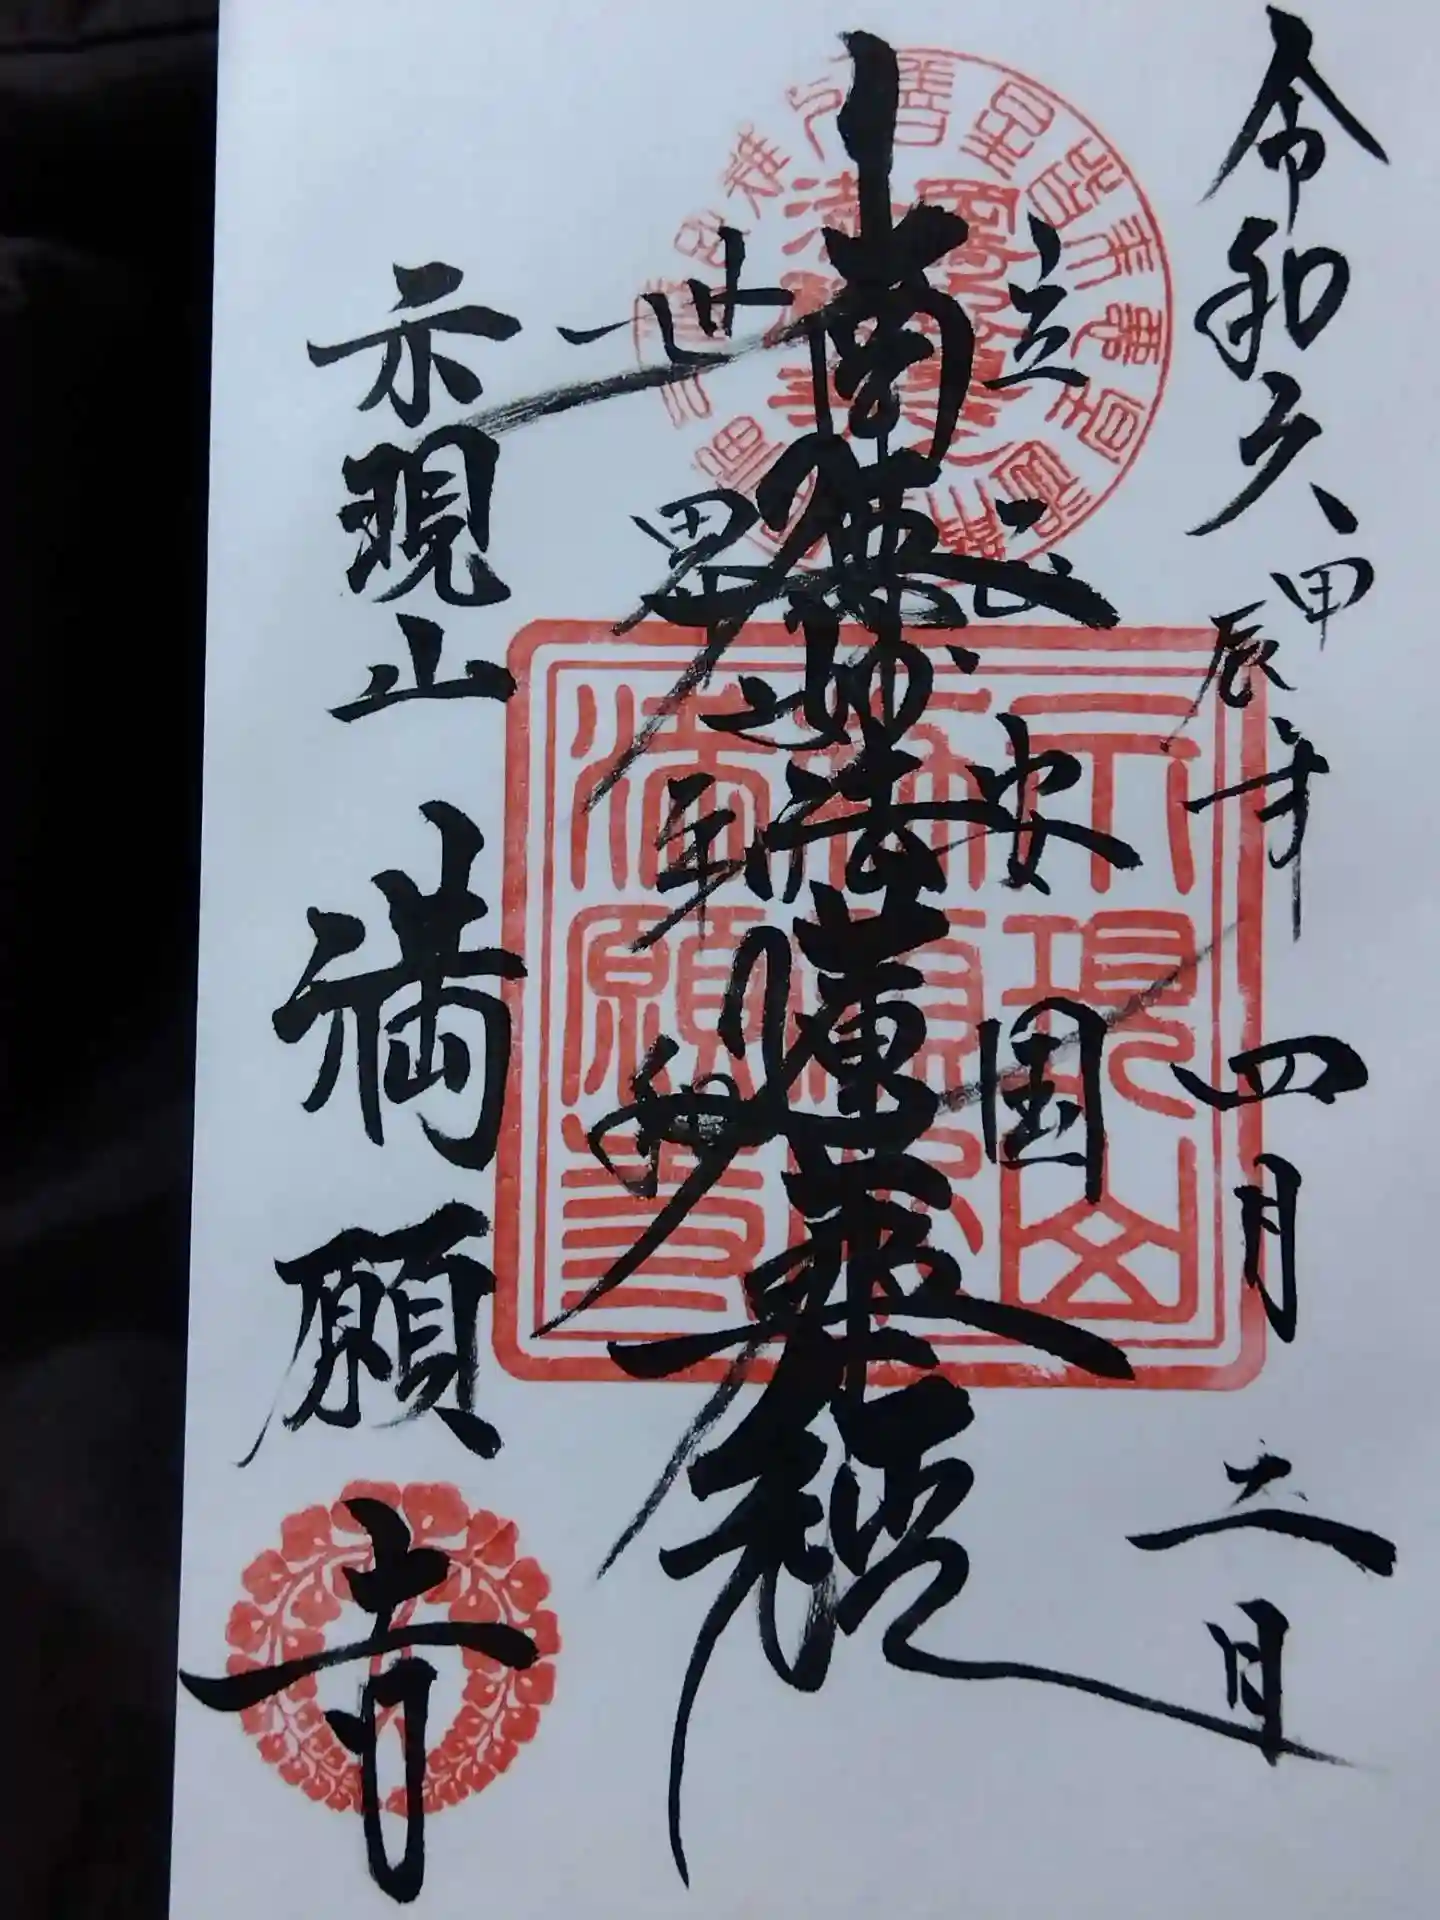 令和六甲辰年 四月 二日
立正安国
南無妙法蓮華経
世界平和
示現山 満願寺
示現山
満願寺